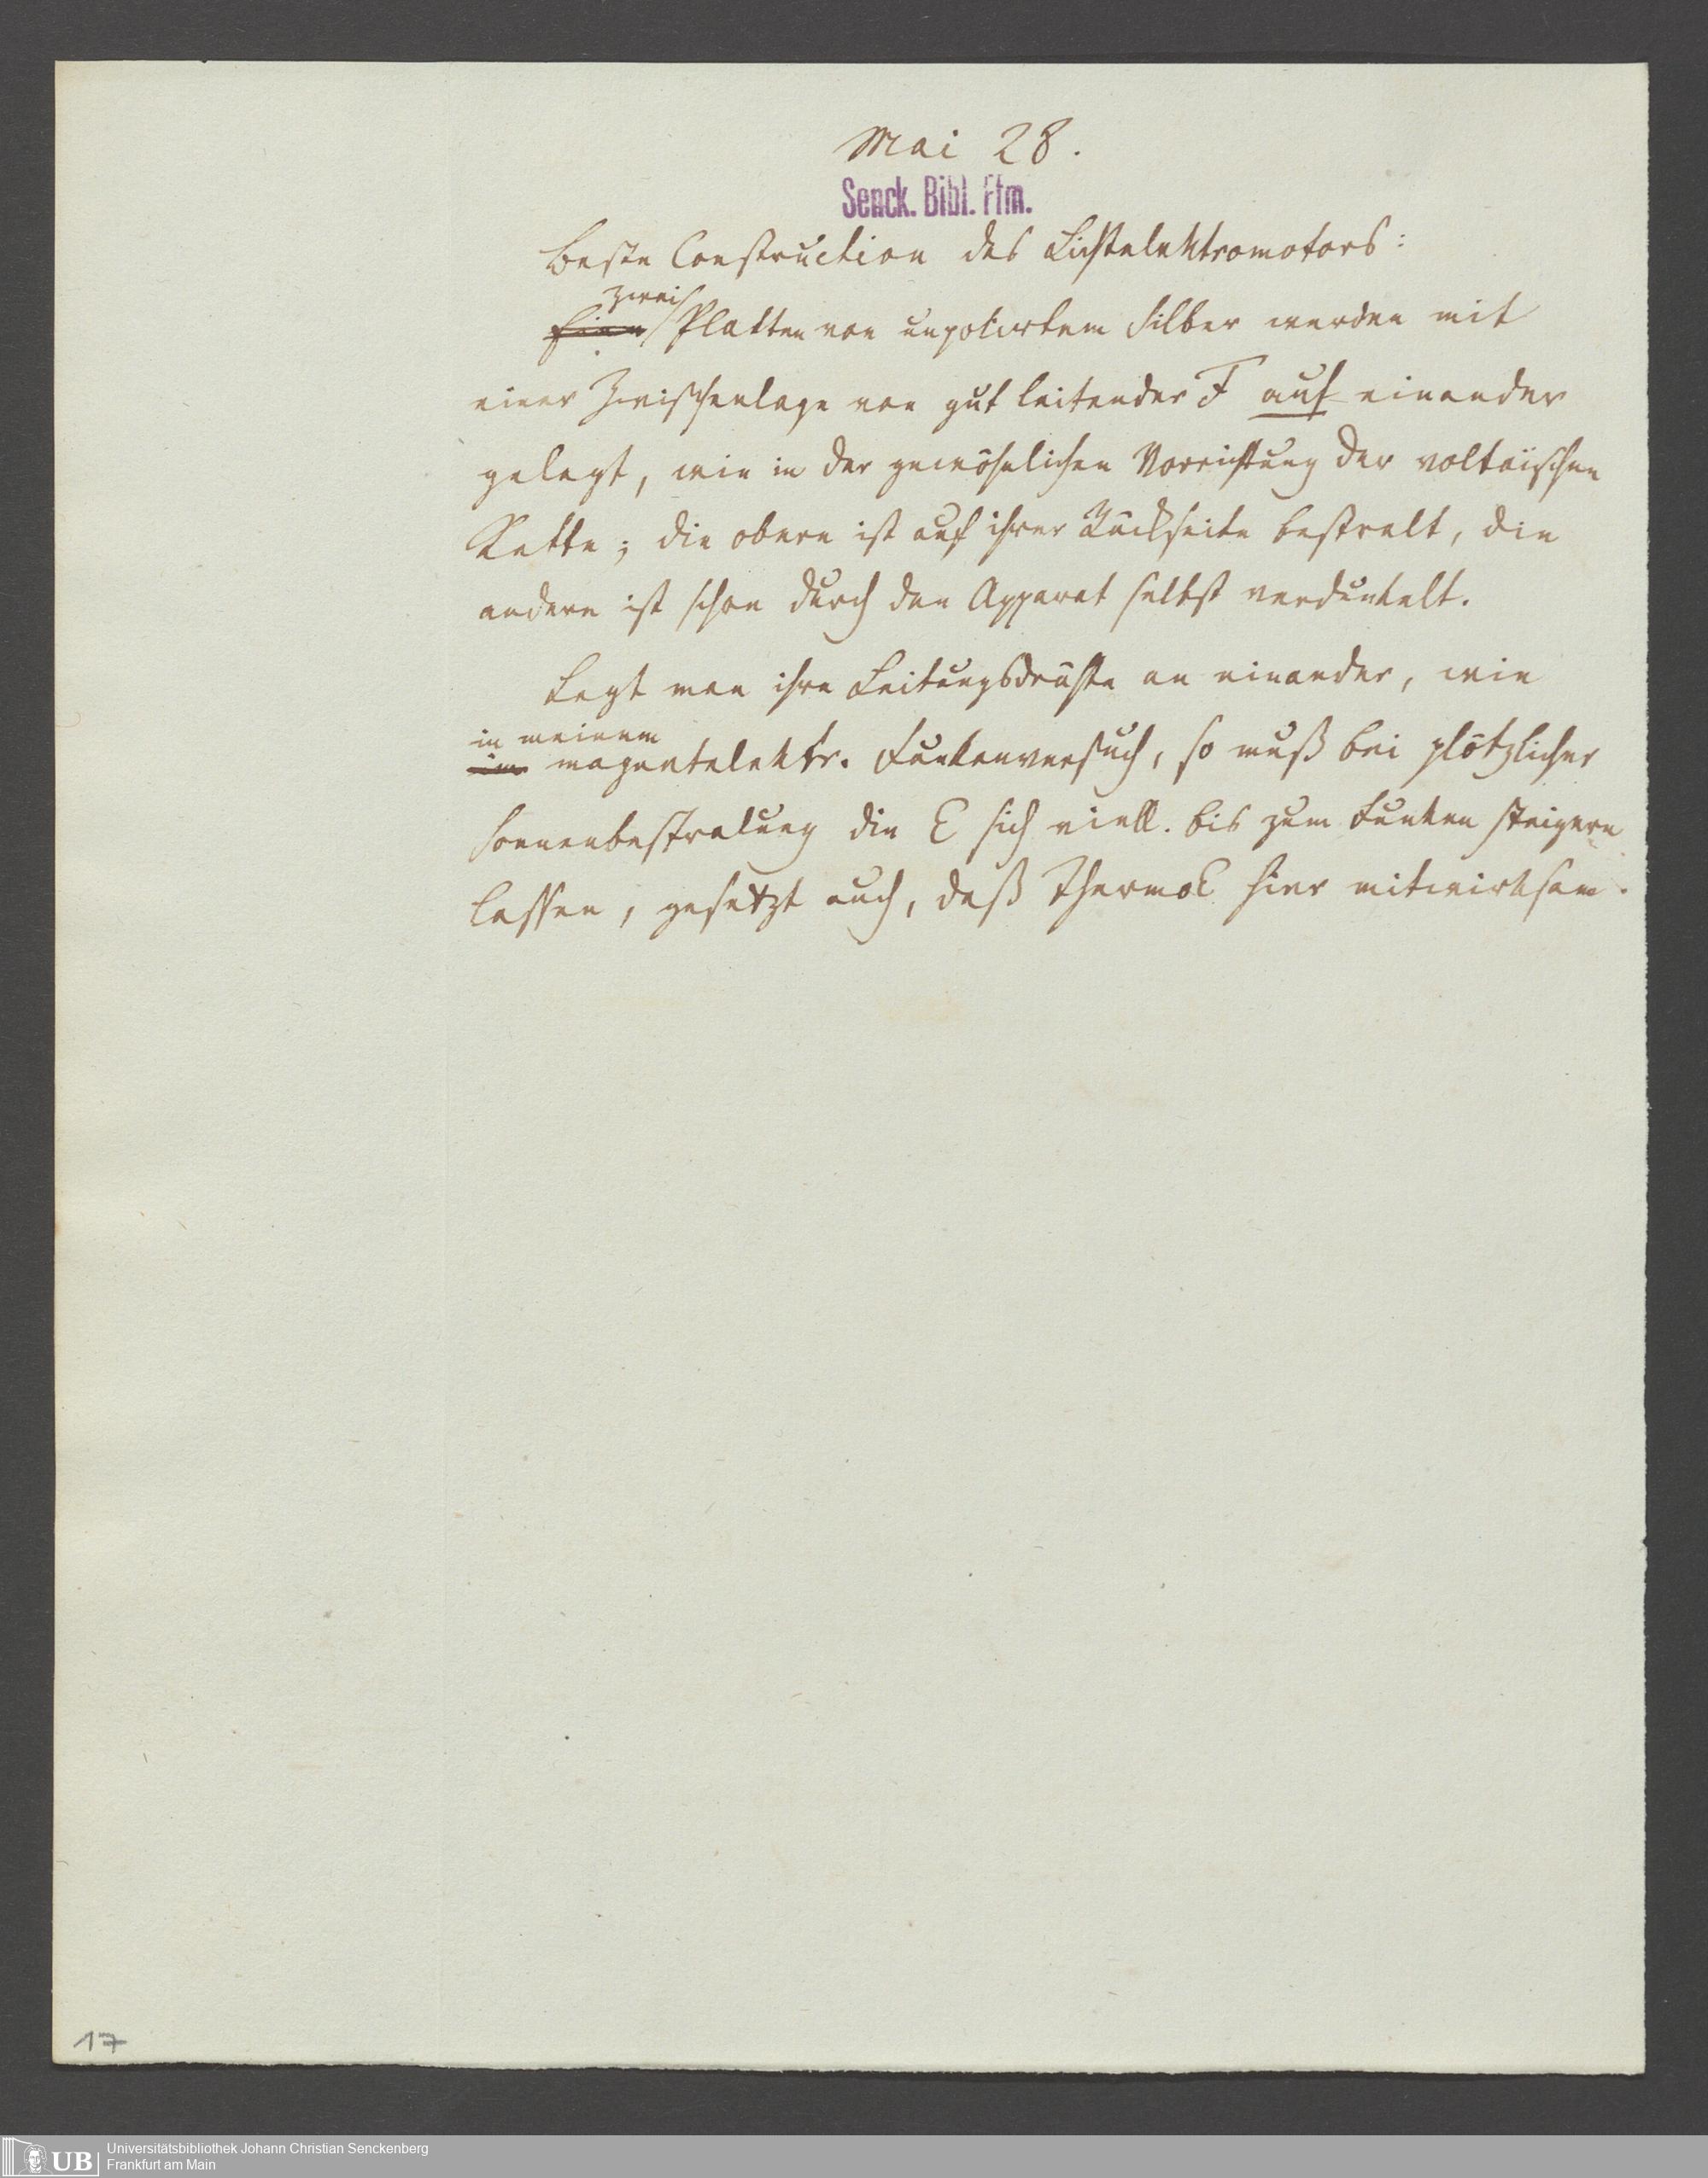 Mai 28.
Senck. Bibl. Ffm.
Beste Construction des Lichtelektromotors:
zwei
Eine Platten von unpolirtem Silber werden mit
einer Zwischenlage von gut leitender F auf einander
gelegt, wie in der gewöhnlichen Vorrichtung der voltaïschen
Kette; die obere ist auf ihrer Rückseite bestralt, die
andere ist schon durch den Apparat selbst verdunkelt.
Legt man ihre Leitungsdräthe an einander, wie
in meinem
im magnetelektr. Funkenversuch, so muß bei plötzlicher
Sonnenbestralung die E sich viell. bis zum Funken steigern
lassen, gesetzt auch, daß ThermoE hier mitwirksam.
17
UB
Universitätsbibliothek Johann Christian Senckenberg
Frankfurt am Main